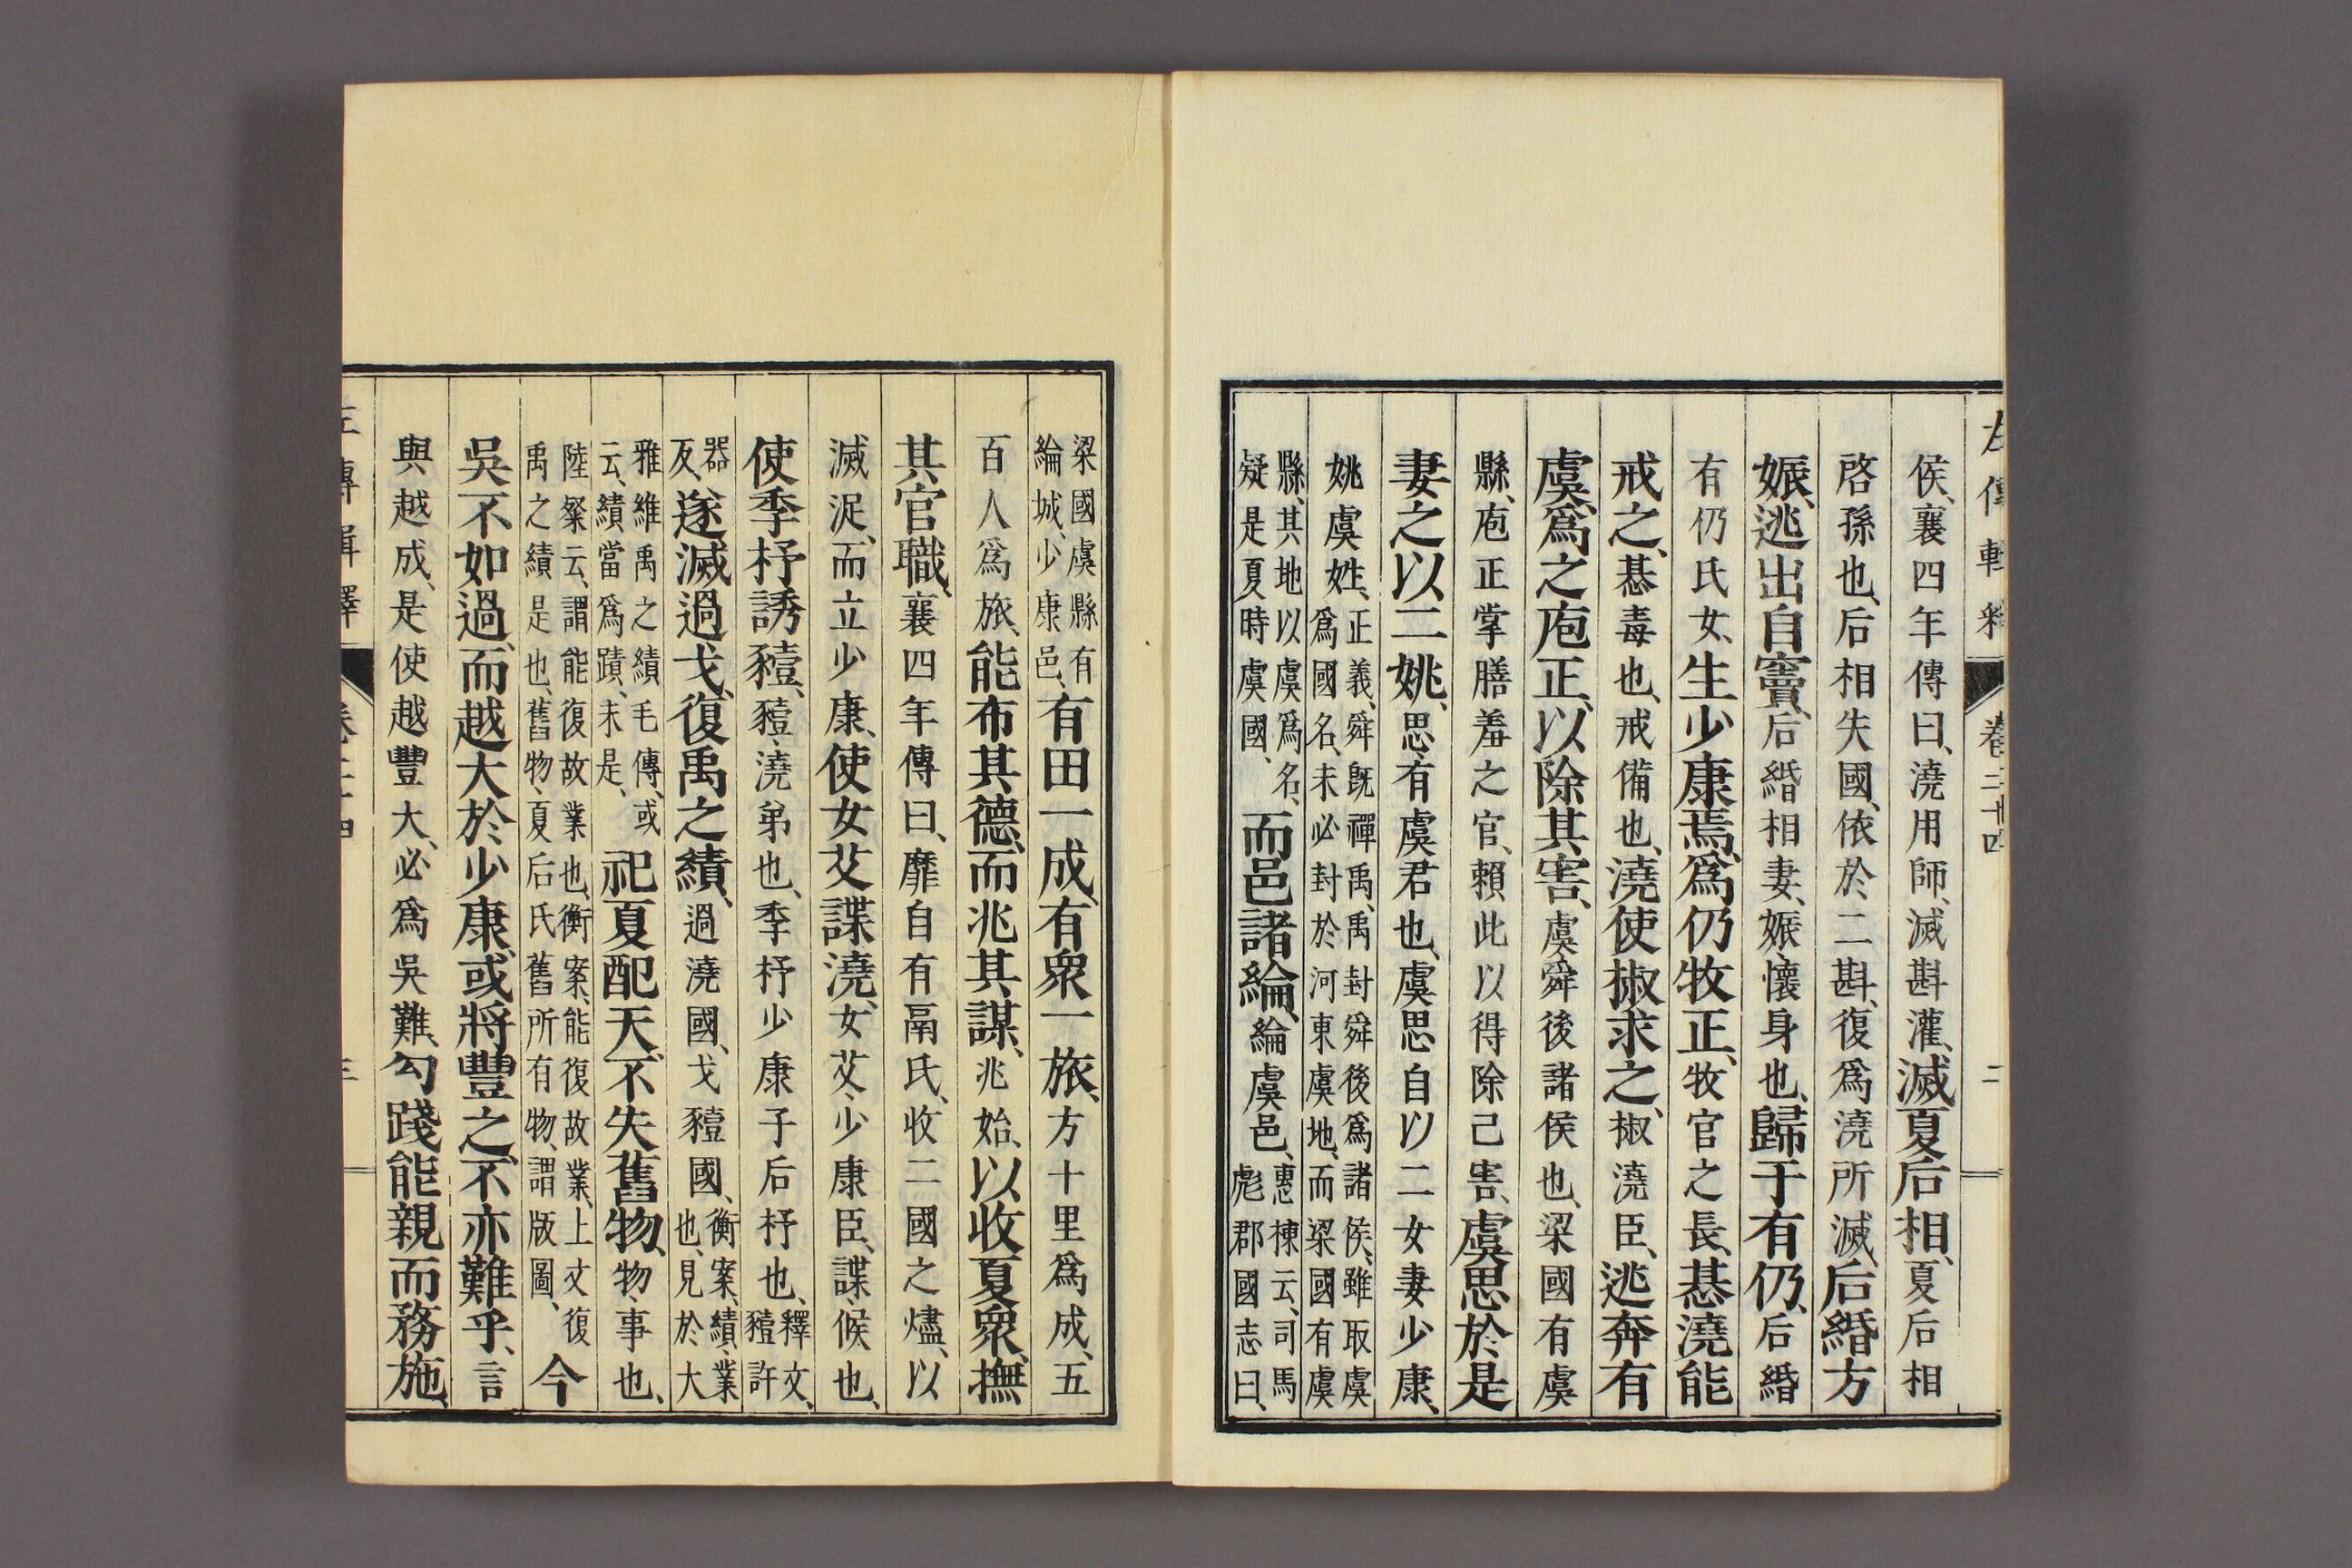 侯、襄四年傳曰、澆用師、滅斟灌、滅夏后相、夏后相
啓孫也、后相失國、依於二斟、復爲澆所滅、后緡方
娠、逃出自竇、后緡相妻、娠、懷身也、歸于有仍、后緡
有仍氏女、生少康焉、爲仍牧正、牧官之長、惎澆能
戒之、惎毒也、戒備也、澆使椒求之、椒澆臣、逃奔有
虞、爲之庖正、以除其害、虞、舜後諸侯也、梁國有虞
縣、庖正掌膳羞之官、賴此以得除己害、虞思於是
妻之以二姚、思、有虞君也、虞思自以二女妻少康、
姚虞姓、正義、舜旣禪禹、禹封舜後爲諸侯、雖取虞
爲國名、未必封於河東虞地、而梁國有虞
縣、其地以虞爲名、
疑是夏時虞國、而邑諸綸、綸虞邑、惠棟云、司馬
彪郡國志曰、
梁國虞縣有
綸城、少康邑、有田一成、有衆一旅、方十里爲成、五
百人爲旅、能布其德、而兆其謀、兆始、以收夏衆、撫
其官職、襄四年傳曰、靡自有鬲氏、收二國之燼、以
滅浞、而立少康、使女艾諜澆、女艾、少康臣、諜、候也、
使季杼誘豷、豷、澆弟也、季杼少康子后杼也、釋文、
豷許
器
反、遂滅過戈、復禹之績、過澆國、戈豷國、衡案、績、業
也、見於大
雅維禹之績毛傳、或
云、績當爲蹟、未是、祀夏配天、不失舊物、物、事也、
陸粲云、謂能復故業也、衡案、能復故業、上文復
禹之績是也、舊物、夏后氏舊所有物、謂版圖、今
吳不如過、而越大於少康、或將豐之、不亦難乎、言
與越成、是使越豐大、必爲吳難、勾踐能親而務施、